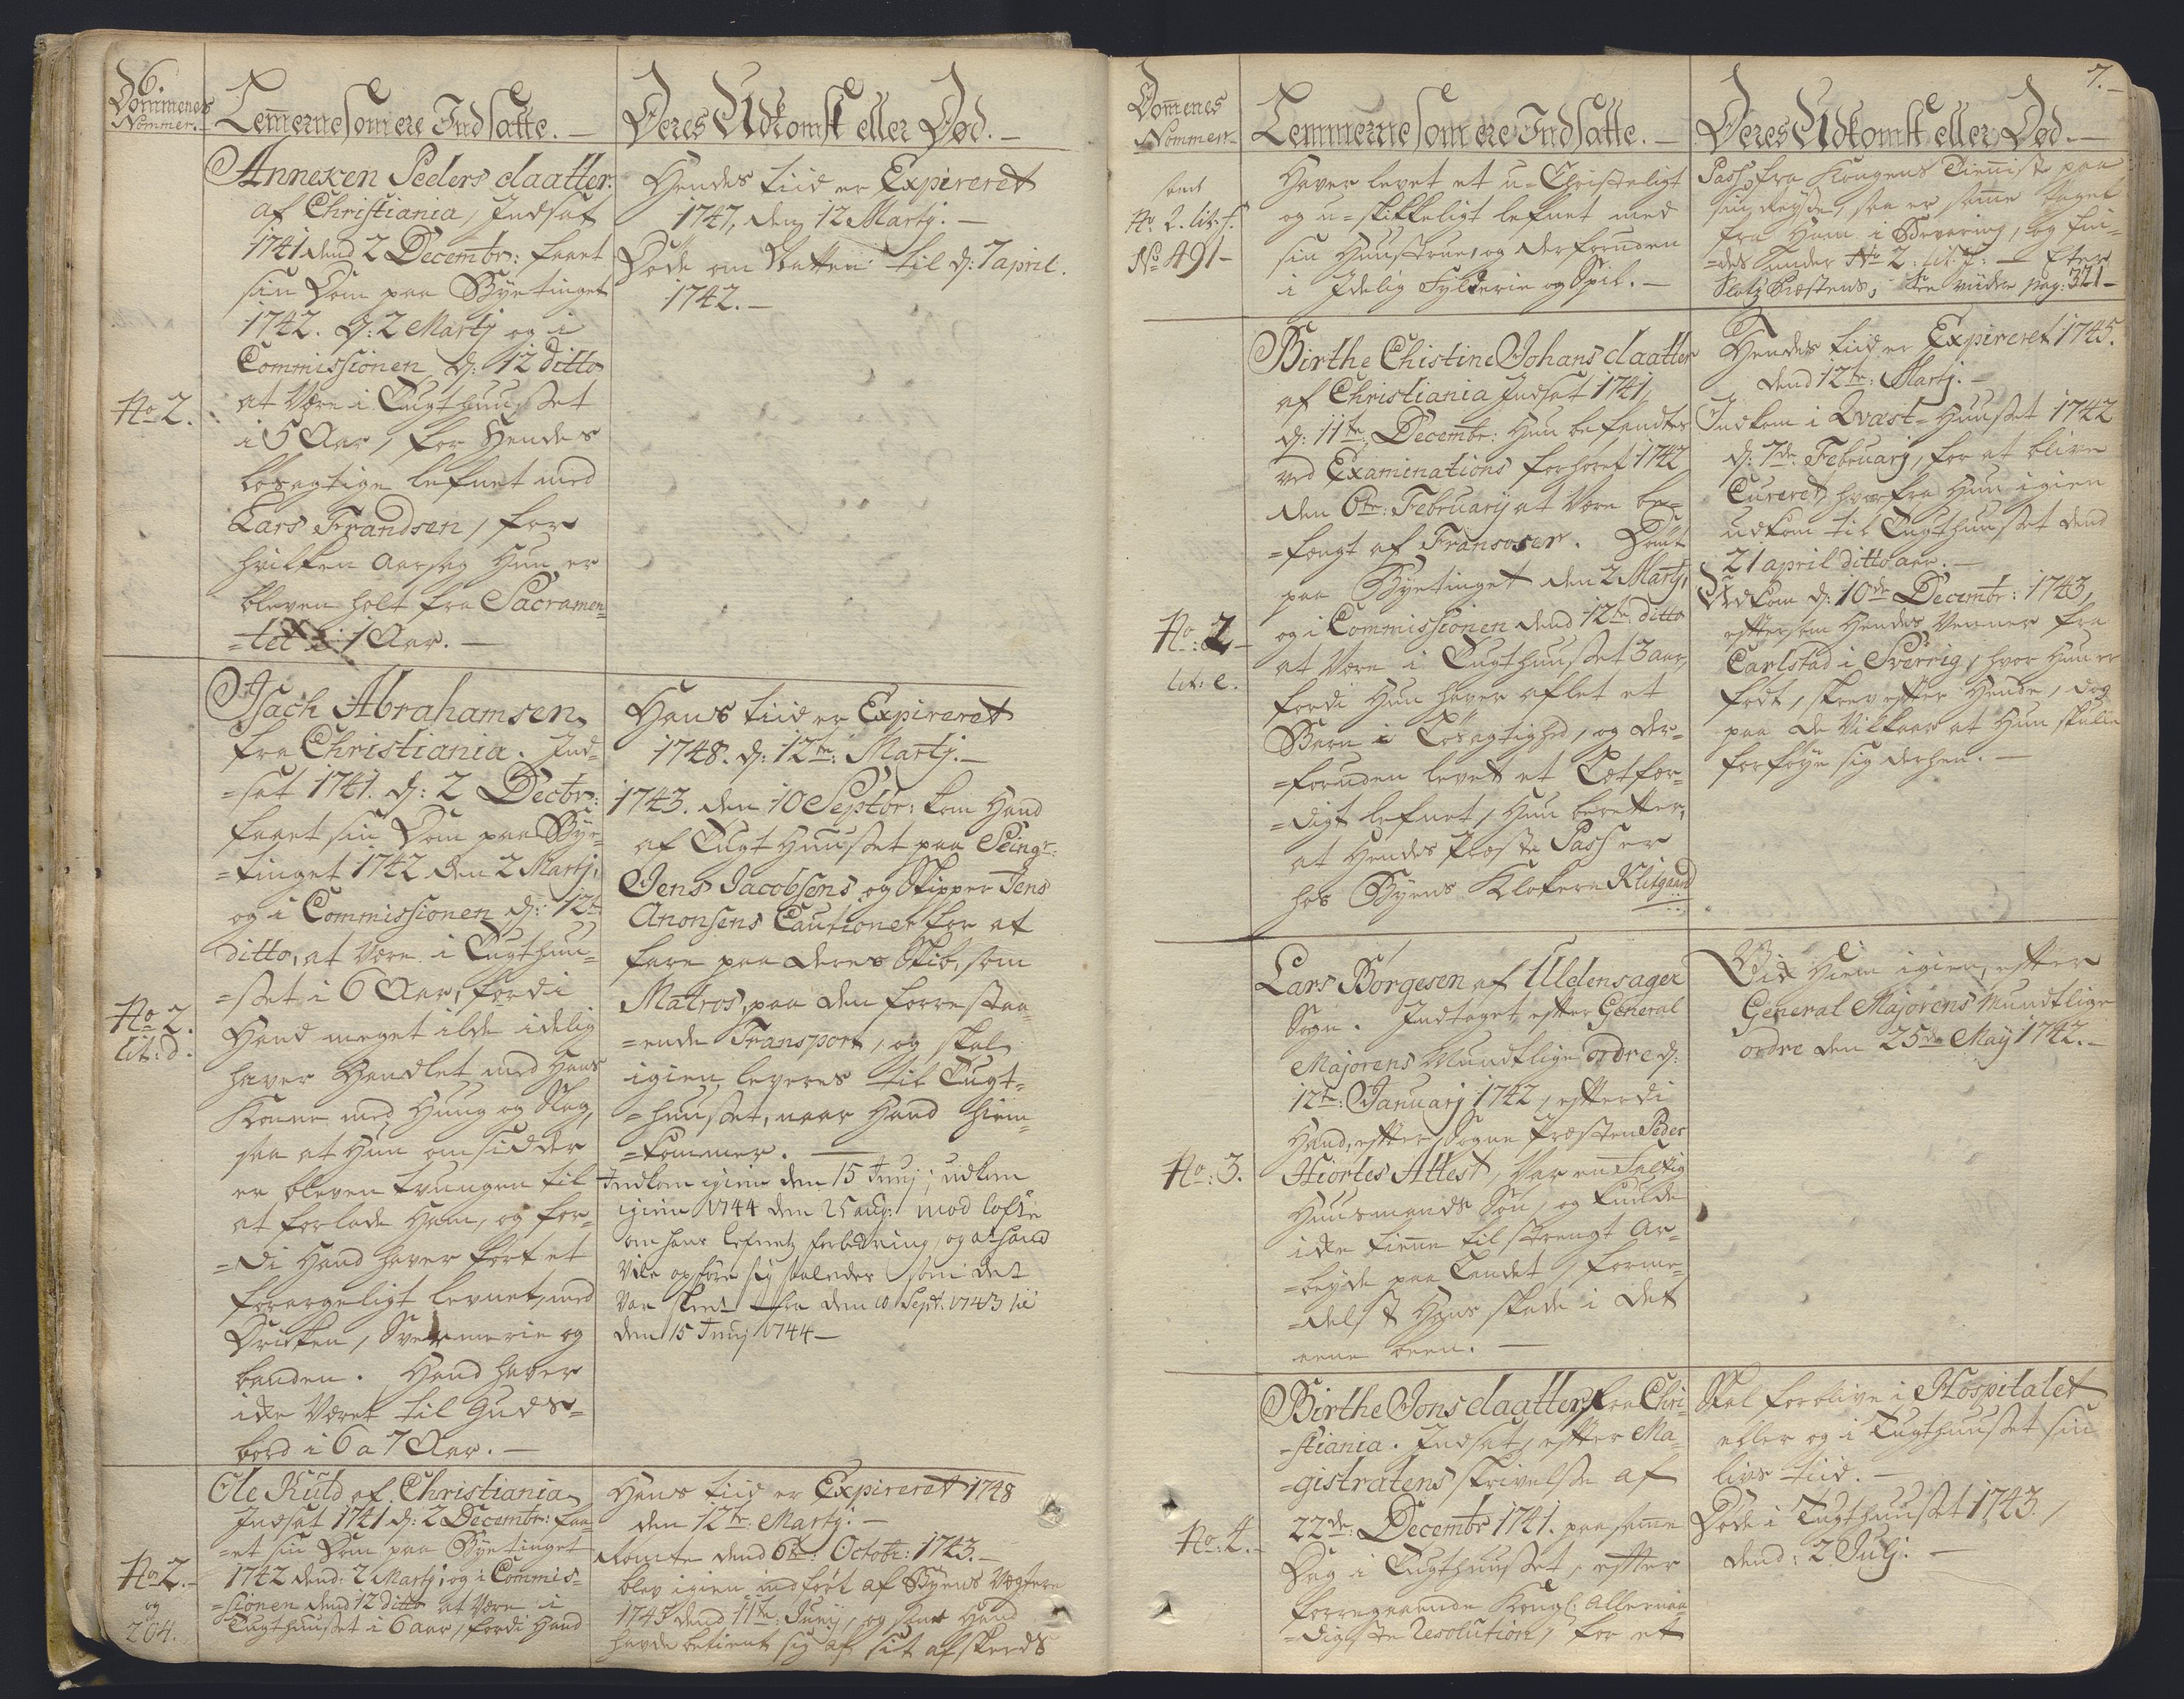 6.
Dommenes
Nommer.
Lemmerne som ere Indsatte. —
Deres Udkomst eller Død. —
No 2.
Anneken Peders daatter.
af Christiania, Indsat
1741 dend 2 Decembr: faaet
sin Dom paa Byetinget
1742. d: 2 Martj og i
Commissionen d: 12 ditto
at Være i Tugthuusset
i 5 Aar, for Hendes
løsagtige lefnet med
Lars Frandsen, for
hvilken aarsag Hun er
bleven holt fra Sacramen=
=tet i 1 Aar. —
Hendes tiid er Expireret
1747, den 12 Martj. —
Døde om Natten til d: 7 april.
1742. —
No 2.
lit: d.
Isach Abrahamsen
fra Christiania. Ind=
=sat 1741. d: 2 Decbr:
faaet sin Dom paa Bye=
=tinget 1742 den 2 Martj,
og i Commissionen d: 12te
ditto, at Være i Tugthuu=
=sset i 6 Aar, fordi
Hand meget ilde idelig
haver Handlet med Hans
Konne med Hung og Slag,
saa at Hun omsidder
er bleven tvungen til
at forlade Ham, og for=
=di Hand haver ført et
forargeligt levnet, med
Dricken, Svermerie og
banden. Hand haver
icke Været til Guds=
bord i 6 a 7 Aar. —
Hans tiid er Expireret
1748. d: 12te Martj. —
1743. den 10 Septbr: kom Hand
af Tugt Huusset paa Seingr:
Jens Jacobsens og Skipper Jens
Anonsens Cautione for at
fare paa deres Skib, som
Matros, paa den forrestaa=
=ende Transport, og skal
igien leveres til Tugt=
=huusset, naar Hand hiem=
=kommer. —
Indkom igien den 15 Junj; udkom
igien 1744 den 25 aug: mod løfte
om hans lefnets forbedring, og at hand
Vile opføre sig saaledes som det
Var skeet fra den 10 Sept. 1743 til
den 15 Junj 1744 —
No 2.
og
204.
Ole Kuld af Christiania
Indsat 1741 d: 2 Decembr: faa=
=et sin Dom paa Byetinget
1742 dend: 2 Martj, og i Commis=
=sionen dend 12 ditto at Være i
Tugthuusset i 6 aar, fordi Hand
Hans tiid er Expireret 1748
den 12te: Martj. —
Romte dend 6te: Octobr: 1743. —
blev igien indført af Byens Vægtere
1745 dend 11te: Junij, og som Hand
hafde betient sig af sit afskeeds
7. —
Domenes
Nommer —
Lemmerne som ere Indsatte. —
Deres Udkomst eller Død. —
samt
No. 2. lit. f.
No 491 —
Haver levet et u=Christeligt
og u=skikkeligt lefnet med
sin Huustrue, og derforuden
i Idelig Fylderie og Spil. —
Pass fra Kongens Tienniste paa
sin Reyse, saa er samme taget
fra Ham i Bevaring, og fin=
=des under No 2: lit: f: —
Slotz Præstens, see viidere pag: 321 —
No: 2 —
lit: e.
Birthe Chistine Johans daatter
af Christiania Indsat 1741,
d: 11te Decembr: Hun befandtes
ved Examinations forhøret 1742
den 6te: Februarij at Være be=
=fængt af Fransoser. Dømt
paa Byetinget den 2 Martj,
og i Commissionen dend 12te ditto
at Være i Tugthuusset 3 aar,
fordi Hun haver aflet et
Barn i Løsagtighed, og der=
=foruden levet et Letfær=
=digt lefnet, Hun beretter,
at Hendes Præste Pass er
hos Byens Klokere Klitgaard
Hendes tiid er Expireret 1745.
dend 12te: Martj. —
Indkom i Qvæst=Huuset 1742
d: 7de Februarj, for at blive
Cureret, hvorfra Hun igien
udkom til Tugthuusset dend
21 april ditto aar. —
Udkom d: 10de Decembr: 1743,
eftersom Hendes Venner fra
Carlstad i Sverrig, hvor Hun er
født, skrev efter Hende, dog
paa de Vilkaar at Hun skulle
forføye sig derhen. —
No: 3.
Lars Borgesen af Ullensager
Sogn. Indtaget efter General
Majorens Mundtlige ordre d:
12te: Januarj 1742, efterdi
Hand, efter Sogne Præsten Peder
Hiortes Attest, Var en Fattig
Huusmands Søn, og kunde
icke tienne til strengt Ar=
=beyde paa Landet, forme=
=delst Hans skade i det
eene been. —
Gik Hiem igien, efter
General Majorens Mundtlige
ordre den 25de May 1742. —
No: 4. —
Birthe Jons daatter, fra Chri=
=stiania. Indsat, efter Ma=
=gistratens skrivelse af
22de: Decembr 1741. paa samme
Dag i Tugthuusset, efter
forregaaende Kongl: Allernaa=
=digste Resolution, for et
Skal forblive i Hospitalet
eller og i Tugthuusset sin
livs tiid. —
Døde i Tugthuusset 1743.
dend: 2 Julj. —